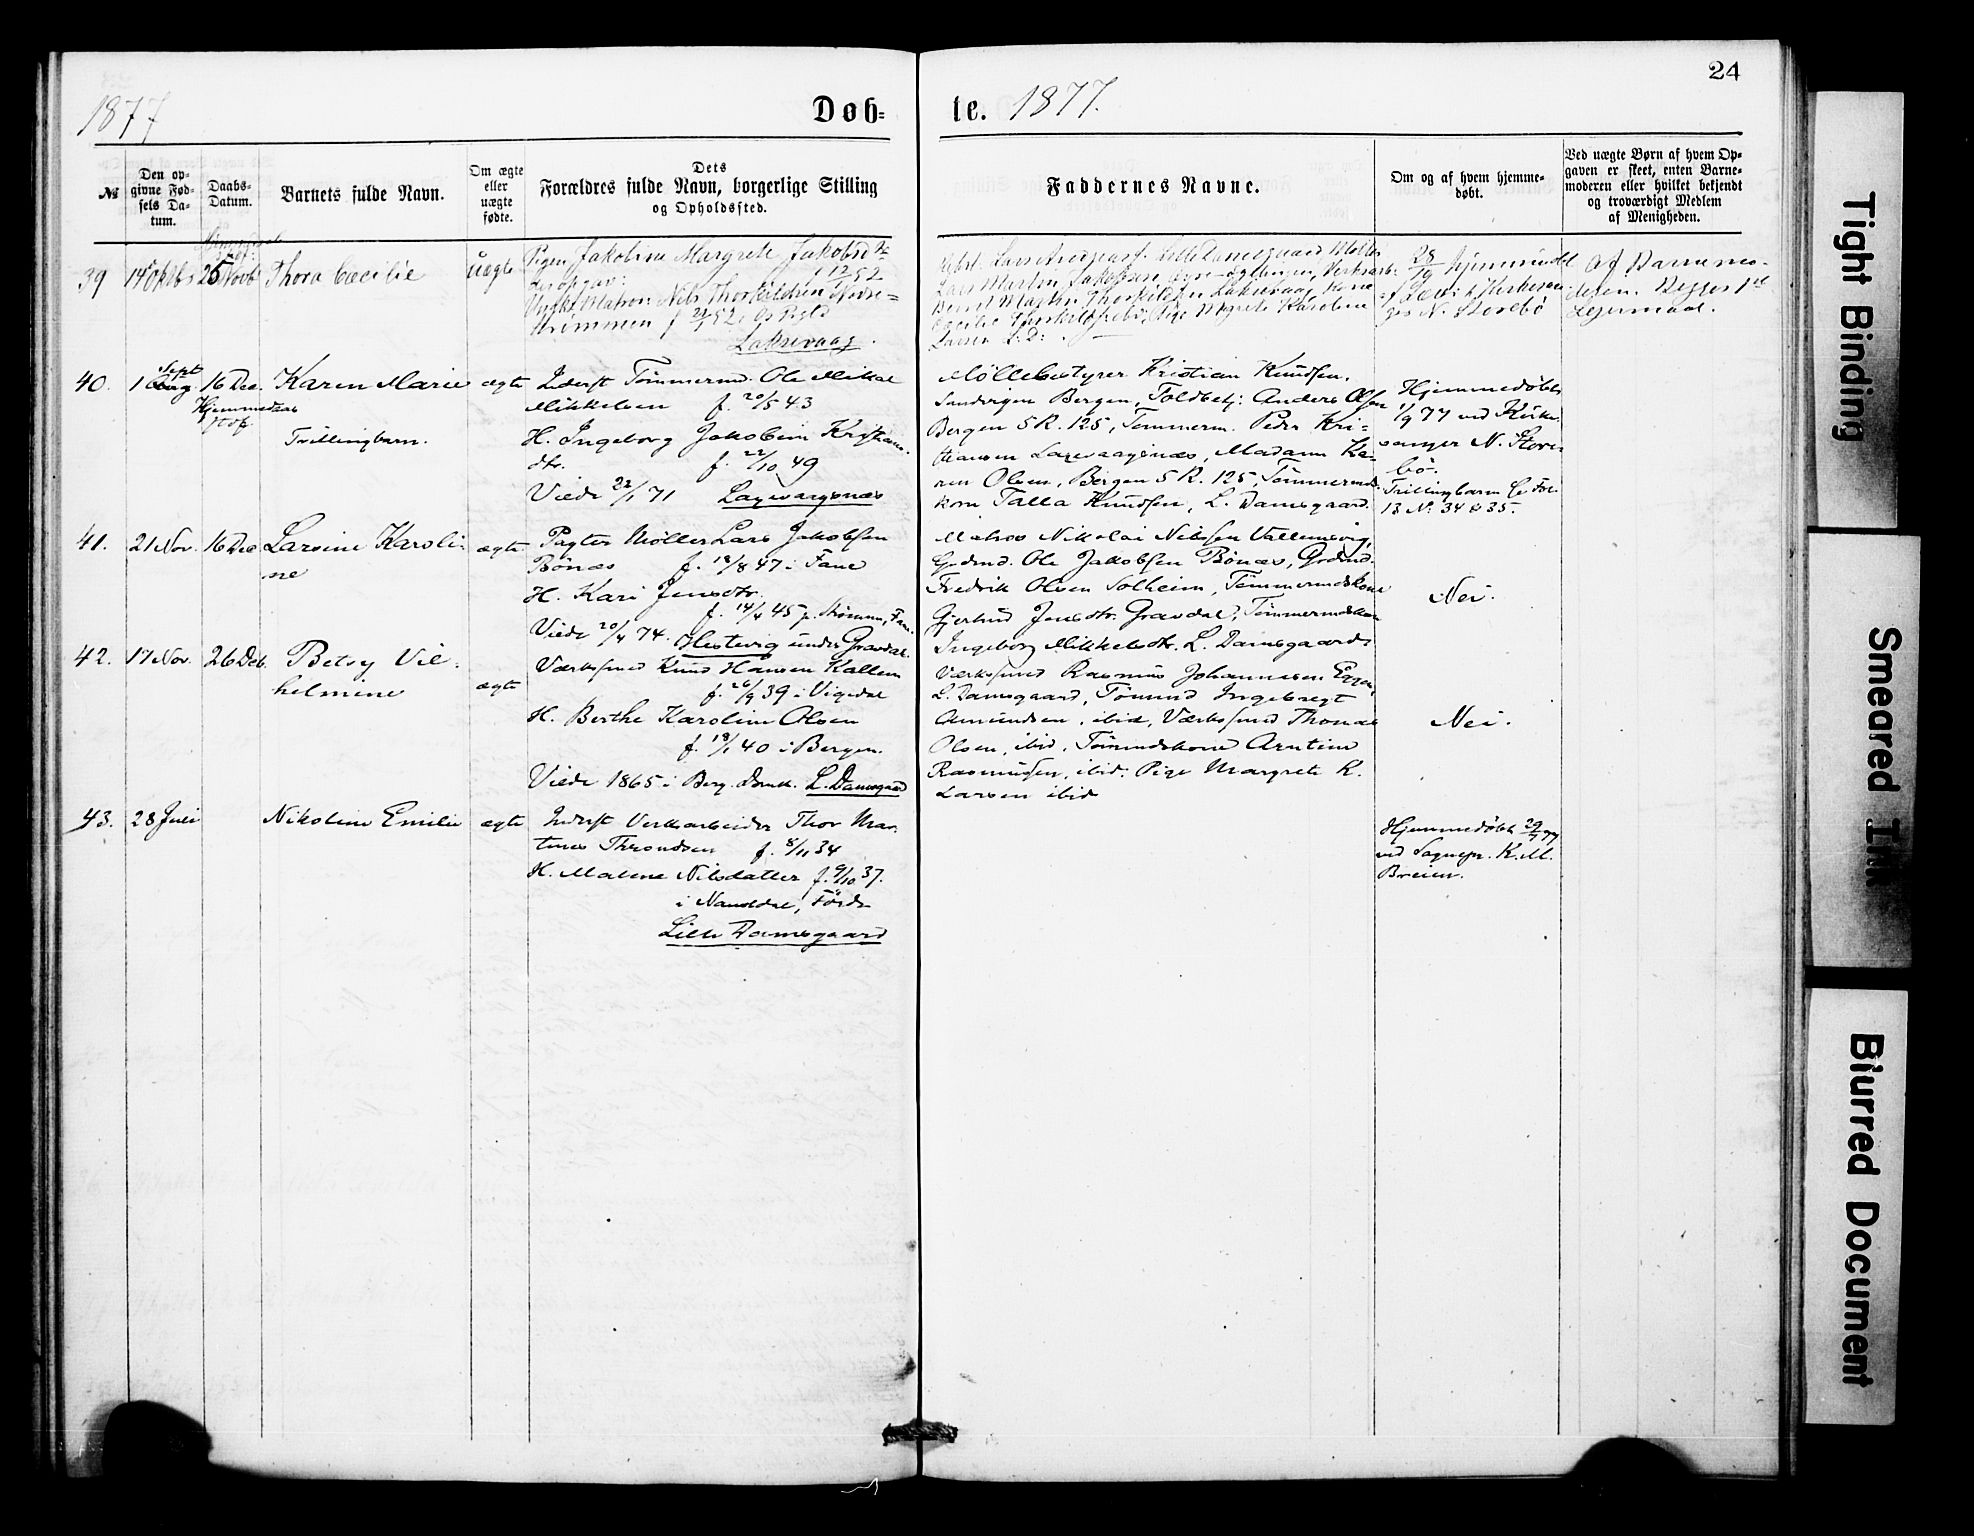 24
1877
Døb=
te. 1877.
№
Den op=
givne Fød=
sels Da=
tum.
Daabs=
Datum.
Barnets fulde Navn.
Om ægte
eller
uægte
fødte.
Dets
Forældres fulde Navn, borgerlige Stilling
og Opholdssted.
Faddernes Navne.
Om og af hvem hjemme=
døbt.
Ved uægte Børn af hvem Op=
gaven er skeet, enten Barne=
moderen eller hvilket bekjendt
og troværdigt Medlem
af Menigheden.
39
14 Oktbr
25 Novb
Thora Cæcilie
uægte
Pigen Jakobine Margrete Jakobsd
12 52
Ungk. Matros Nils Thorkildsen Nodre=
strimmen f 52,
Laksevaag.
Lars Martin Jakobsen
Thorkildsen Laksevaag Kone
Larsen L: D:
28/10 hjemmedøbt
N. Storebø
Af Barnemo=
deren. Begges 1ste
Leiermaal.
40.
1 Sept
16 Dec.
Hjemmedaab
Karen Marie
Trillingbarn.
ægte
Inderst Tømmermd. Ole Mikal
Mikkelsen f. 20/5 43
H. Ingeborg Jakobine Kristians
dtr. f. 22/10 49
Viede 22/1 71 Laxevaagsnæs
Møllebestyrer Kristian Knudsen,
Sandvigen Bergen, Toldbetj: Anders Olsen
Bergen 5 R. 125, Tømmerm. Peder Kri=
stiansen Laxevaagsnæs, Madam Ka=
ren Olsen, Bergen 5 R. 125, Tømmermds=
kone Talla Knudsen, L. Damsgaard.
Hjemmedøbt
1/9 77 ved Kirke
sanger N. Store
bø.
Trillingbarn Se Fol.
13 N. 34 & 35.
41.
21 Nov.
16 Dec
Larsine Karoli=
ne
ægte
Pagter Møller Lars Jakobsen
Bønæs f. 18/8 47 i Fane
H. Kari Jensdtr.
f. 14/4 45 p. Strømmen, Fane.
Viede 20/4 74. Hestevig under Gravdal.
Matros Nikolai Nilssen Vallemsvig,
Grdmd. Ole Jakobsen Bønæs, Grdmd.
Fredrik Olsen Solheim, Tømmermdskone
Gjertrud Jensdtr. Gravdal, Tømmermdskone
Ingeborg Mikkelsdtr. L. Damsgaard.
Nei.
42.
17 Nov.
26 Deb.
Betsy Vil=
helmine
ægte
Værksmed Knud Hansen Kallem
f. 26/9 39 i Vigedal
H. Berthe Karoline Olsen
f. 18/1 40 i Bergen.
Viede 1865 i Berg. Domk. L. Damsgaard
Værksmed Rasmus Johannesen
L. Damsgaard, Tømmd Ingebregt
Amundsen, ibid, Værksmed Thomas
Olsen, ibid, Tømmdskone Arntine
Rasmussen, ibid: Pige Margrete K.
Larsen ibid
Nei.
43.
28 Juli
Nikoline Emilie
ægte
Inderst Verksarbeider Thor Mar=
tines Throndsen f. 8/11 34
H. Malene Nilsdatter f. 9/10 37.
i Naustdal, Förde
Lille Damsgaard
Hjemmedøbt 29/7 77
ved Sognepr. K. M.
Breien.
Tight Binding
Smeared Ink
Blurred Document